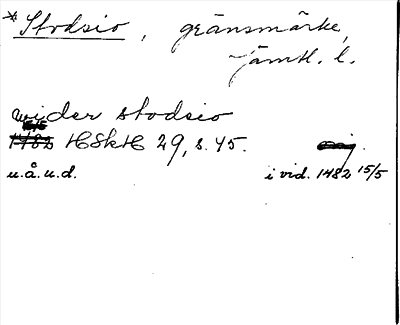 *Stodsio, gränsmärke,
Jämtl. l.
wider stodsio
1482 HSkH 29, s. 45.
u.å.u.d. i vid. 1482 15/5